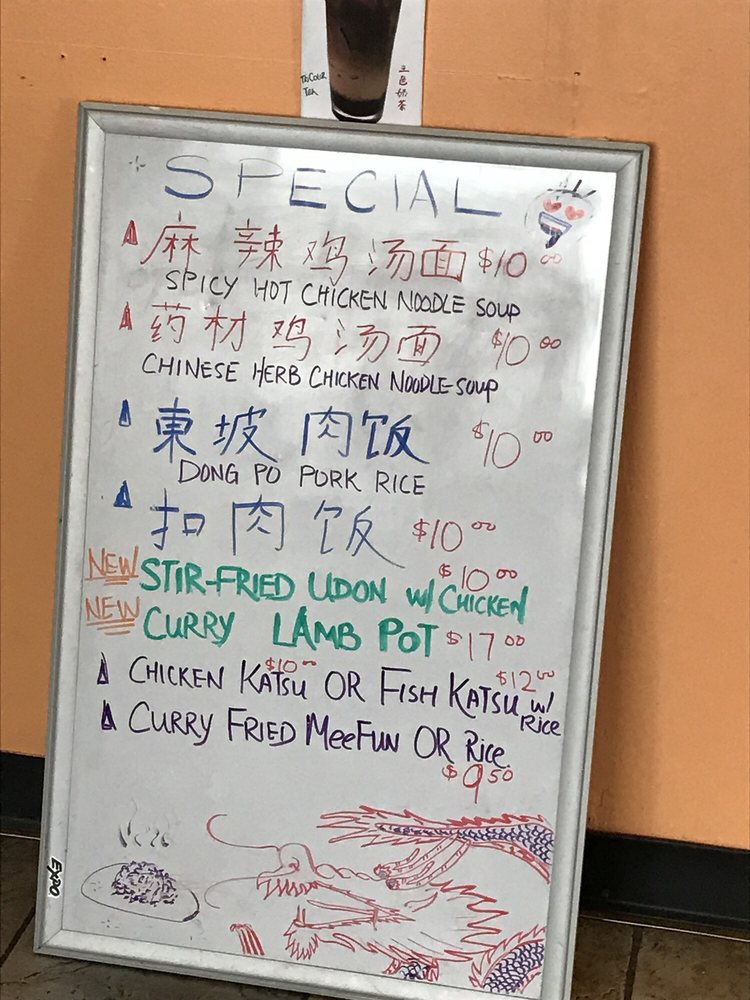 TRICOLOR TEA
三色奶茶
SPECIAL
麻辣鸡汤面 $10 00
SPICY HOT CHICKEN NOODLE SOUP
药材鸡汤面 $10 00
CHINESE HERB CHICKEN NOODLE SOUP
東坡肉饭 $10 00
DONG PO PORK RICE
扣肉饭 $10 00
NEW STIR-FRIED UDON W/ CHICKEN $10 00
NEW CURRY LAMB POT $17 00
CHICKEN KATSU $10 00 OR FISH KATSU W/ Rice $12 00
CURRY FRIED MeeFUN OR Rice
$9 50
EXPO